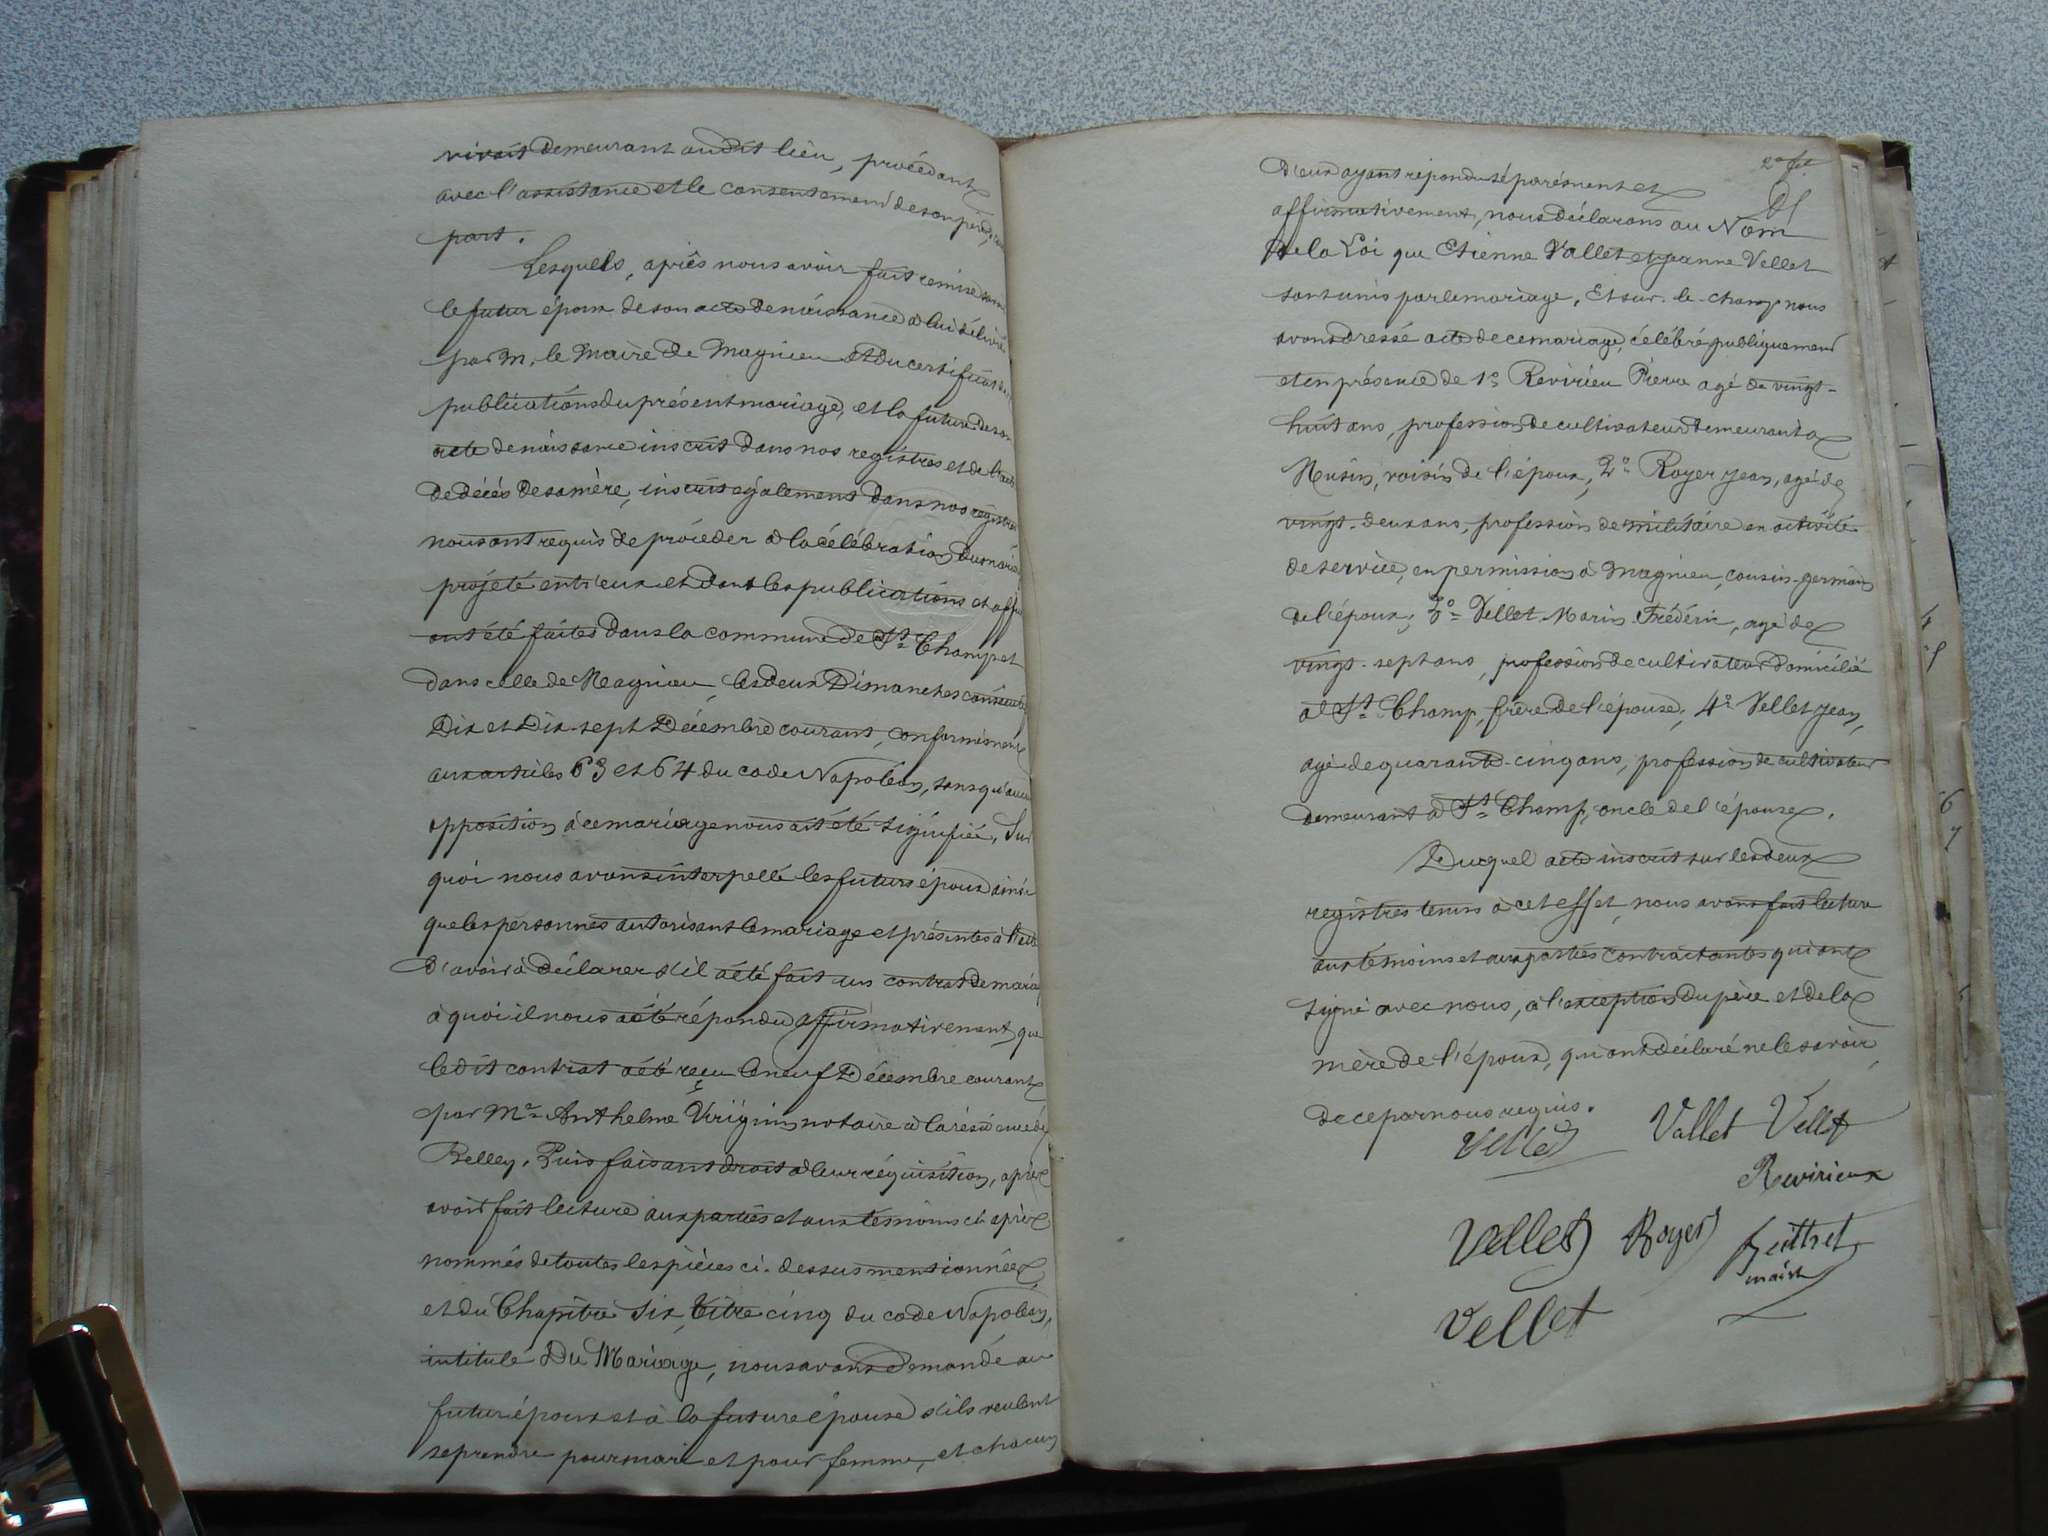 vivait demeurant audit lieu, procédant
avec l'assistance et le consentement de son père, d'autre
part.
Lesquels, après nous avoir fait remise savoir
le futur époux de son acte de naissance à lui délivré
par M. le Maire de Magnieu et du certificat de
publications du présent mariage, et la future de son
acte de naissance inscrit dans nos registres et de l'acte
de décès de sa mère, inscrit également dans nos registres
nous ont requis de procéder à la célébration du mariage
projeté entr'eux et dont les publications et affiches
ont été faites dans la commune de St Champ et
dans celle de Magnieu, les deux Dimanches consécutifs
Dix et Dix-sept Décembre courant, conformément
aux articles 63 et 64 du code Napoléon, sans qu'aucune
opposition à ce mariage nous ait été signifiée, Sur
quoi nous avons interpellé les futurs époux ainsi
que les personnes autorisant le mariage et présentes à l'acte
D'avoir à déclarer s'il a été fait un contrat de mariage
à quoi il nous a été répondu affirmativement, que
le dit contrat a été reçu le neuf Décembre courant
par Me Anthelme notaire à la résidence de
Belley. Puis faisant droit à leur réquisition, après
avoir fait lecture aux parties et aux témoins ci-après
nommés de toutes les pièces ci-dessus mentionnées,
et du Chapitre Six, Titre cinq du code Napoléon,
intitulé Du Mariage, nous avons demandé au
futur époux et à la future épouse s'ils veulent
se prendre pour mari et pour femme, et chacun
2e fet
D'eux ayant répondu séparément et
affirmativement, nous déclarons au Nom
de la Loi que Etienne Vallet et Jeanne Vellet
sont unis par le mariage, Et sur-le-champ nous
avons dressé acte de ce mariage, célébré publiquement
et en présence de 1o Revirieu Pierre agé de vingt-
huit ans, profession de cultivateur demeurant à
Musin, voisin de l'époux; 2o Royer Jean, agé de
vingt-deux ans, profession de militaire en activité
de service, en permission à Magnieu, cousin-germain
de l'époux; 3o Vellet Marin Frédéric, agé de
vingt-sept ans, profession de cultivateur domicilié
à St Champ, frère de l'épouse; 4o Vellet Jean,
agé de quarante-cinq ans, profession de cultivateur
demeurant à St Champ, oncle de l'épouse.
Duquel acte inscrit sur les deux
registres tenus à cet effet, nous avons fait lecture
aux témoins et aux parties contractantes qui ont
signé avec nous, à l'exception du père et de la
mère de l'époux, qui ont déclaré ne le savoir
de ce par nous requis.
Vellet Vallet Vellet
Revirieux
Vellet Royer
maire
Vellet